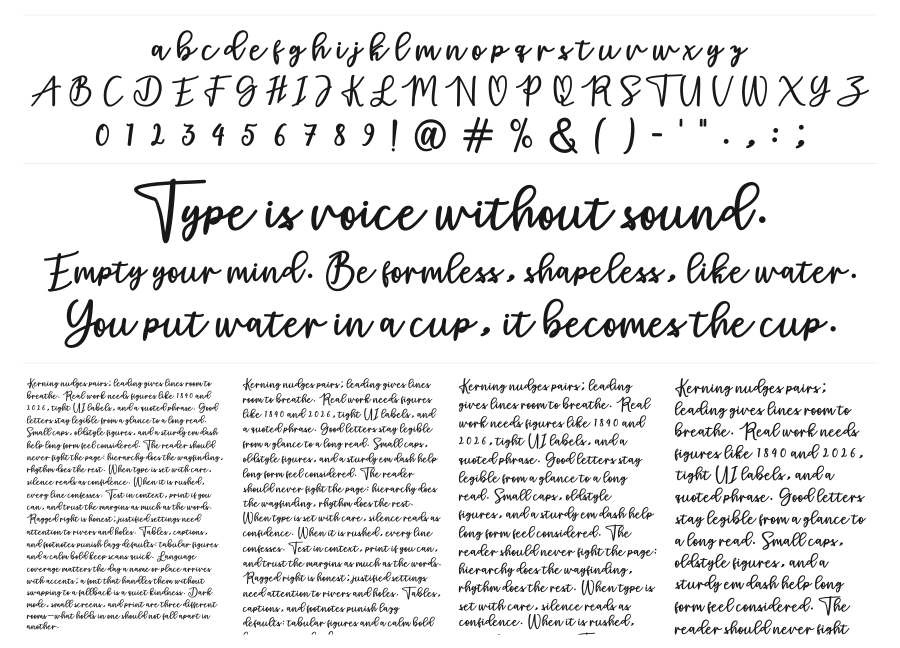 a b c d e f g h i j k l m n o p q r s t u v w x y z
A B C D E F G H I J K L M N O P Q R S T U V W X Y Z
0 1 2 3 4 5 6 7 8 9 ! @ # % & ( ) - ' " . , : ;
Type is voice without sound.
Empty your mind. Be formless, shapeless, like water.
You put water in a cup, it becomes the cup.
Kerning nudges pairs; leading gives lines room to
breathe. Real work needs figures like 1890 and
2026, tight UI labels, and a quoted phrase. Good
letters stay legible from a glance to a long read.
Small caps, oldstyle figures, and a sturdy em dash
help long form feel considered. The reader should
never fight the page: hierarchy does the wayfinding,
rhythm does the rest. When type is set with care,
silence reads as confidence. When it is rushed,
every line confesses. Test in context, print if you
can, and trust the margins as much as the words.
Ragged right is honest; justified settings need
attention to rivers and holes. Tables, captions,
and footnotes punish lazy defaults: tabular figures
and a calm bold keep scans quick. Language
coverage matters the day a name or place arrives
with accents; a font that handles them without
swapping to a fallback is a quiet kindness. Dark
mode, small screens, and print are three different
rooms—what holds in one should not fall apart in
another.
Kerning nudges pairs; leading gives lines
room to breathe. Real work needs figures
like 1890 and 2026, tight UI labels, and
a quoted phrase. Good letters stay legible
from a glance to a long read. Small caps,
oldstyle figures, and a sturdy em dash help
long form feel considered. The reader
should never fight the page: hierarchy does
the wayfinding, rhythm does the rest.
When type is set with care, silence reads as
confidence. When it is rushed, every line
confesses. Test in context, print if you can,
and trust the margins as much as the words.
Ragged right is honest; justified settings
need attention to rivers and holes. Tables,
captions, and footnotes punish lazy
defaults: tabular figures and a calm bold
Kerning nudges pairs; leading
gives lines room to breathe. Real
work needs figures like 1890 and
2026, tight UI labels, and a
quoted phrase. Good letters stay
legible from a glance to a long
read. Small caps, oldstyle
figures, and a sturdy em dash help
long form feel considered. The
reader should never fight the page:
hierarchy does the wayfinding,
rhythm does the rest. When type is
set with care, silence reads as
confidence. When it is rushed,
Kerning nudges pairs;
leading gives lines room to
breathe. Real work needs
figures like 1890 and 2026,
tight UI labels, and a
quoted phrase. Good letters
stay legible from a glance to
a long read. Small caps,
oldstyle figures, and a
sturdy em dash help long
form feel considered. The
reader should never fight